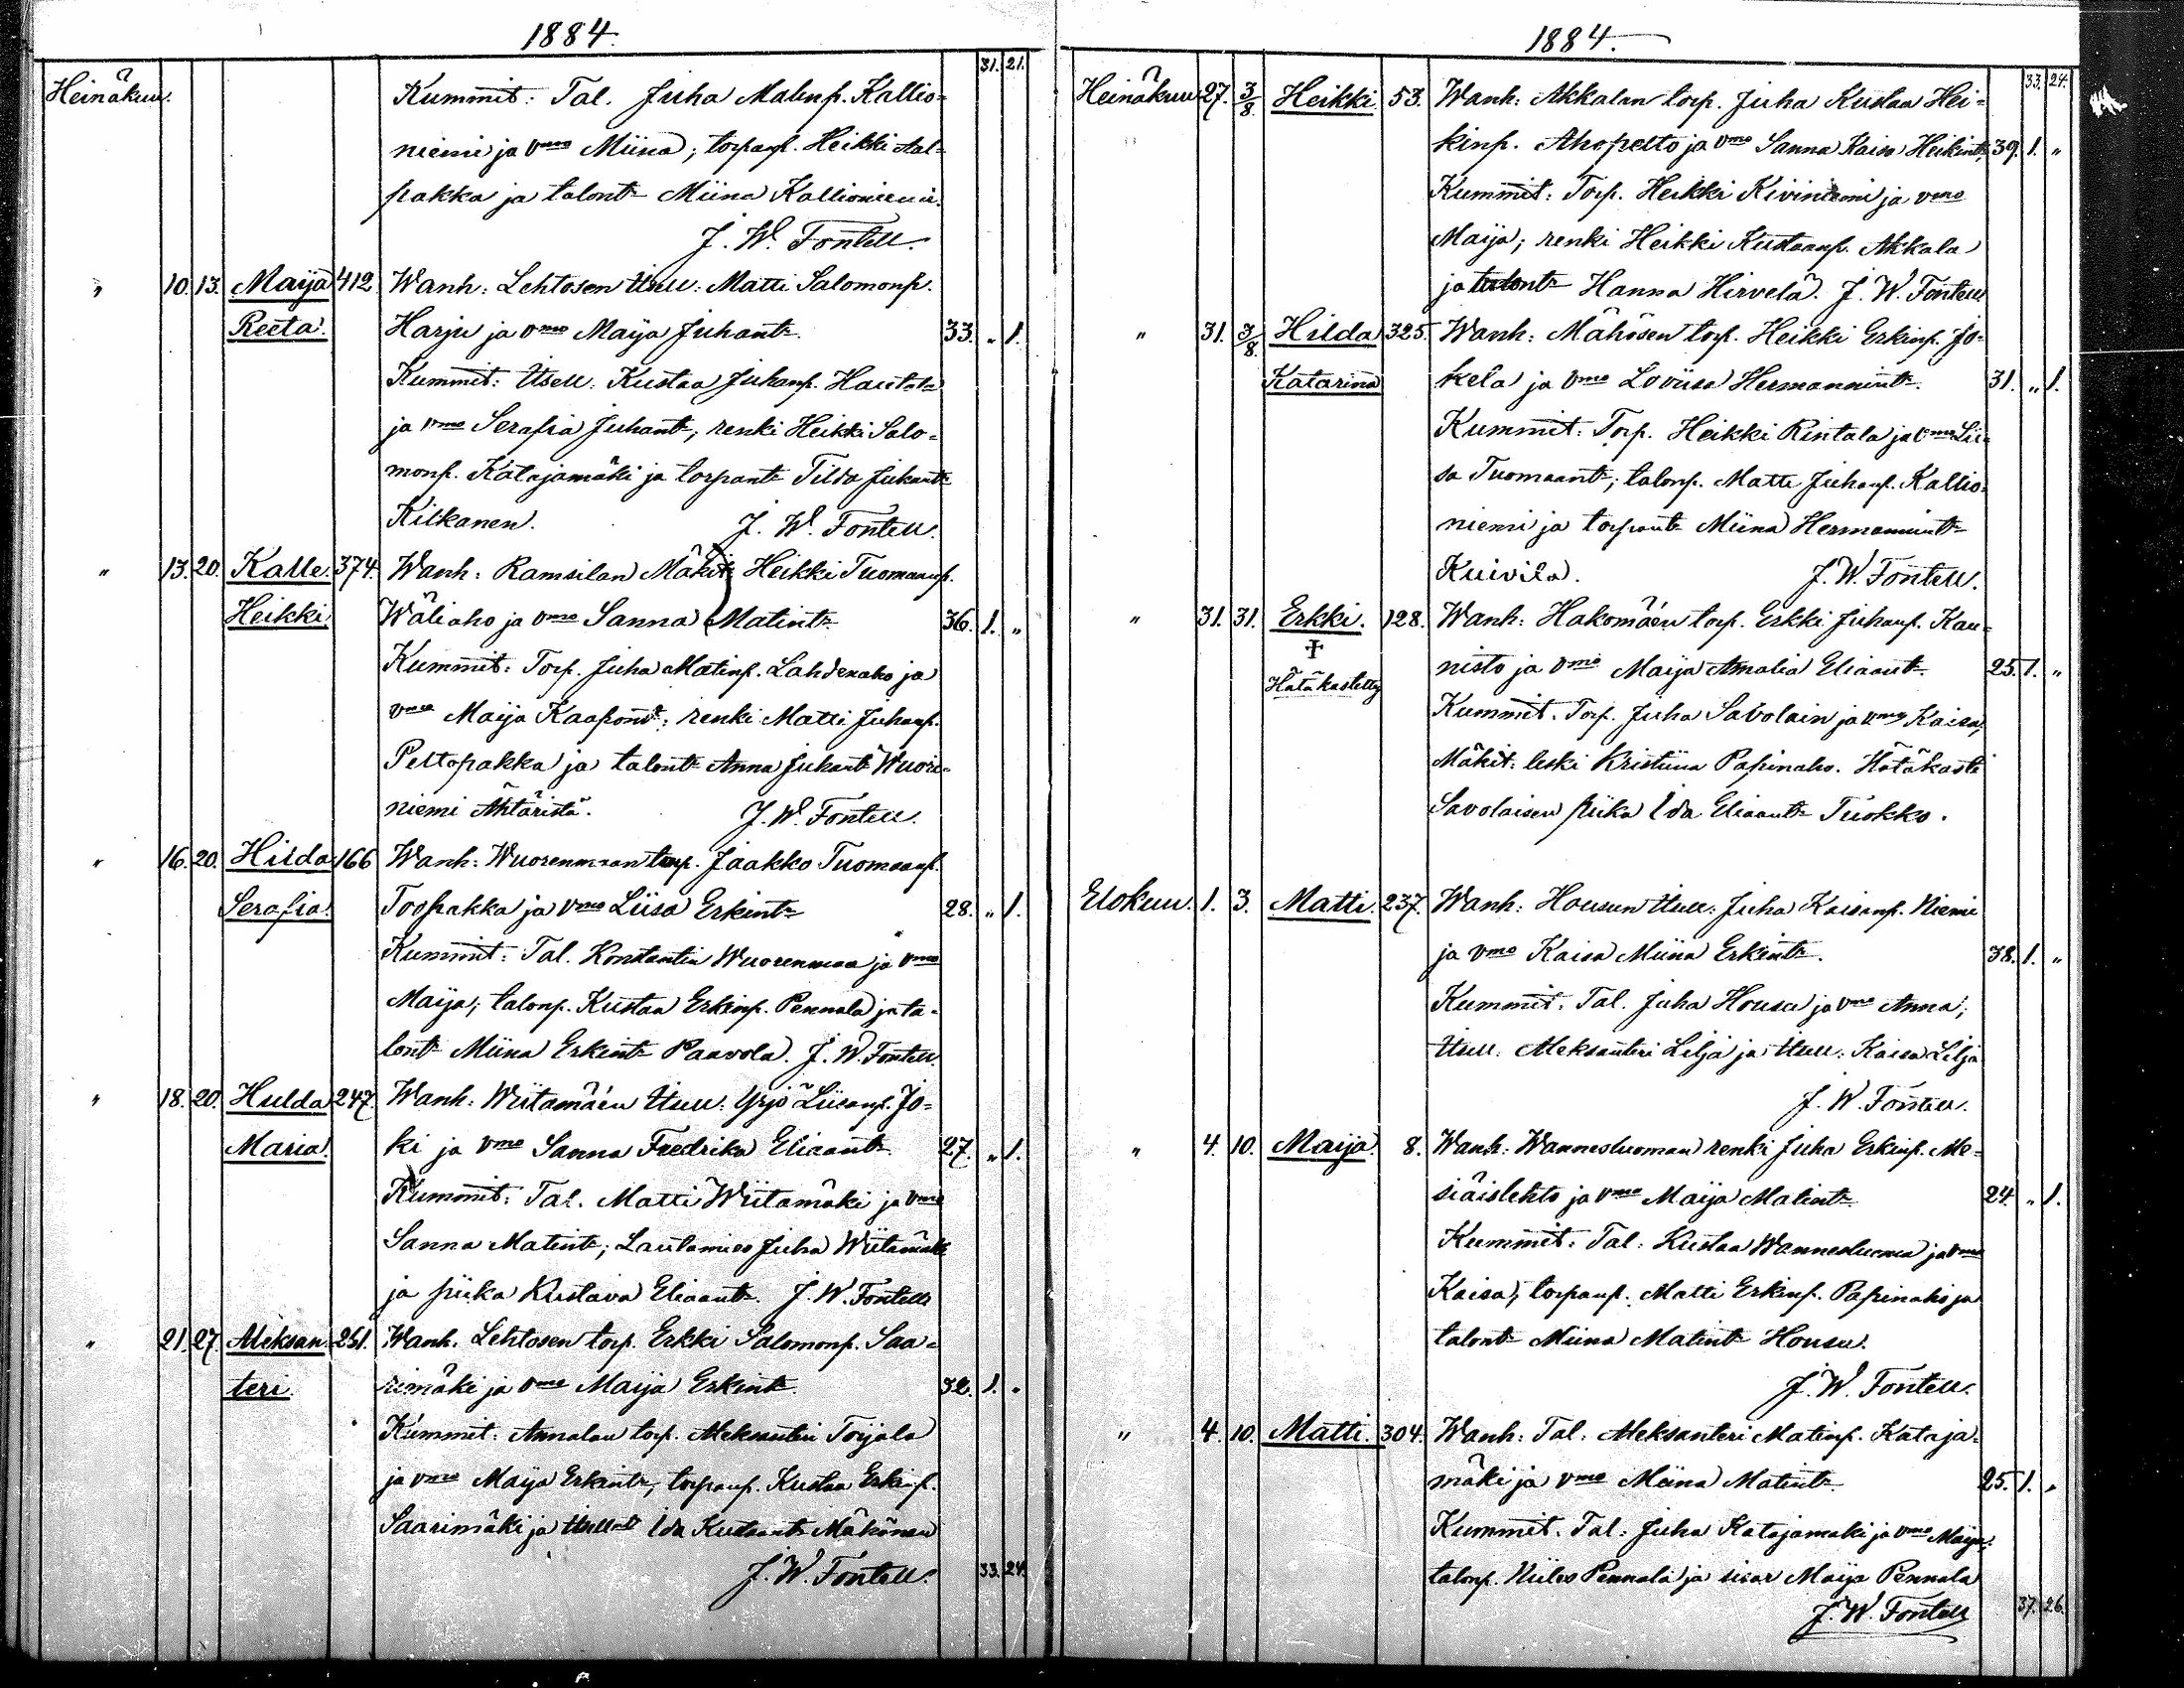 1884.
31. 21.
Heinäkuu. Kummit: Tal. Juha Matinp. Kallio-
niemi ja vmo Miina; torpanp. Heikki Aal-
pakka ja talont. Miina Kallioniemi.
J. W. Fontell.
" 10. 13. Maija 412 Wanh: Lehtosen itsell. Matti Salomonp.
Reeta. Harju ja vmo Maija Juhant. 33. " 1.
Kummit: Itsell. Kustaa Juhanp. Hautala
ja vmo Serafia Juhant; renki Heikki Salo-
monp. Katajamäki ja torpant. Tilda Juhant.
Kilkanen. J. W. Fontell.
" 13. 20. Kalle 374. Wanh: Ramsilan Mäkit. Heikki Tuomaanp.
Heikki. Wäliaho ja vmo Sanna Matint. 36. 1. "
Kummit: Torp. Juha Matinp. Lahdenaho ja
vmo Maija Kaapont; renki Matti Juhanp.
Peltopakka ja talont. Anna Juhant. Wuori-
niemi Ähtäristä. J. W. Fontell.
" 16. 20. Hilda 166 Wanh: Wuorenmaan torp. Jaakko Tuomaanp.
Serafia. Toopakka ja vmo Liisa Erkint. 28. " 1.
Kummit: Tal. Konstantin Wuorenmaa ja vmo
Maija; talonp. Kustaa Erkinp. Pennala ja ta-
lont. Miina Erkint. Paavola. J. W. Fontell.
" 18. 20. Hulda 247. Wanh: Wiitamäen itsell. Yrjö Liisanp. Jo-
Maria. ki ja vmo Sanna Fredrika Eliaant. 27. " 1.
Kummit: Tal. Matti Wiitamäki ja vmo
Sanna Matint; Lautamies Juha Wiitamäki
ja piika Kustava Eliaant. J. W. Fontell
" 21. 27. Aleksan- 251. Wanh. Lehtosen torp. Erkki Salomonp. Saa-
teri. rimäki ja vmo Maija Erkint. 32. 1. "
Kummit: Annalan torp. Aleksanteri Toijala
ja vmo Maija Erkint; torpanp. Kustaa Erkinp.
Saarimäki ja itsell. Ida Kustaant. Mähönen
J. W. Fontell. 33. 24.
1884.
33. 24.
Heinäkuu 27. 3/8. Heikki 53. Wanh: Akkalan torp. Juha Kustaa Hei-
kinp. Ahopelto ja vmo Sanna Kaisa Heikint. 39. 1. "
Kummit: Torp. Heikki Kiviniemi ja vmo
Maija; renki Heikki Kustaanp. Akkala
ja talont. Hanna Hirvelä. J. W. Fontell
" 31. 3/8. Hilda 325. Wanh: Mähösen torp. Heikki Erkinp. Jo-
Katarina kela ja vmo Loviisa Hermannint. 31. " 1.
Kummit: Torp. Heikki Rintala ja vmo Lii-
sa Tuomaant; talonp. Matti Juhanp. Kallio-
niemi ja torpant. Miina Hermannint.
Kuivila. J. W. Fontell.
" 31. 31. Erkki. 128. Wanh: Hakomäen torp. Erkki Juhanp. Kau-
Hätäkastettu nisto ja vmo Maija Amalia Eliaant. 25. 1. "
Kummit. Torp. Juha Savolain ja vmo Kaisa,
Mäkit. leski Kristiina Papinaho. Hätäkasti
Savolaisen piika Ida Eliaant. Tuokko.
Elokuu. 1. 3. Matti. 237. Wanh: Housun itsell. Juha Kaisanp. Niemi
ja vmo Kaisa Miina Erkint. 38. 1. "
Kummit. Tal. Juha Housu ja vmo Anna;
itsell. Aleksanteri Lilja ja itsell. Kaisa Lilja
J. W. Fontell.
" 4. 10. Maija. 8. Wanh: Wannesluoman renki Juha Erkinp. Me-
siäislehto ja vmo Maija Matint. 24. " 1.
Kummit: Tal. Kustaa Wannesluoma ja vmo
Kaisa; torpanp. Matti Erkinp. Papinaho ja
talont. Miina Matint. Housu.
J. W. Fontell.
" 4. 10. Matti. 304. Wanh: Tal. Aleksanteri Matinp. Kataja-
mäki ja vmo Miina Matint. 25. 1. "
Kummit. Tal. Juha Katajamäki ja vmo Maija;
talonp. Niilos Pennala ja sisar Maija Pennala
J. W. Fontell 37. 26.